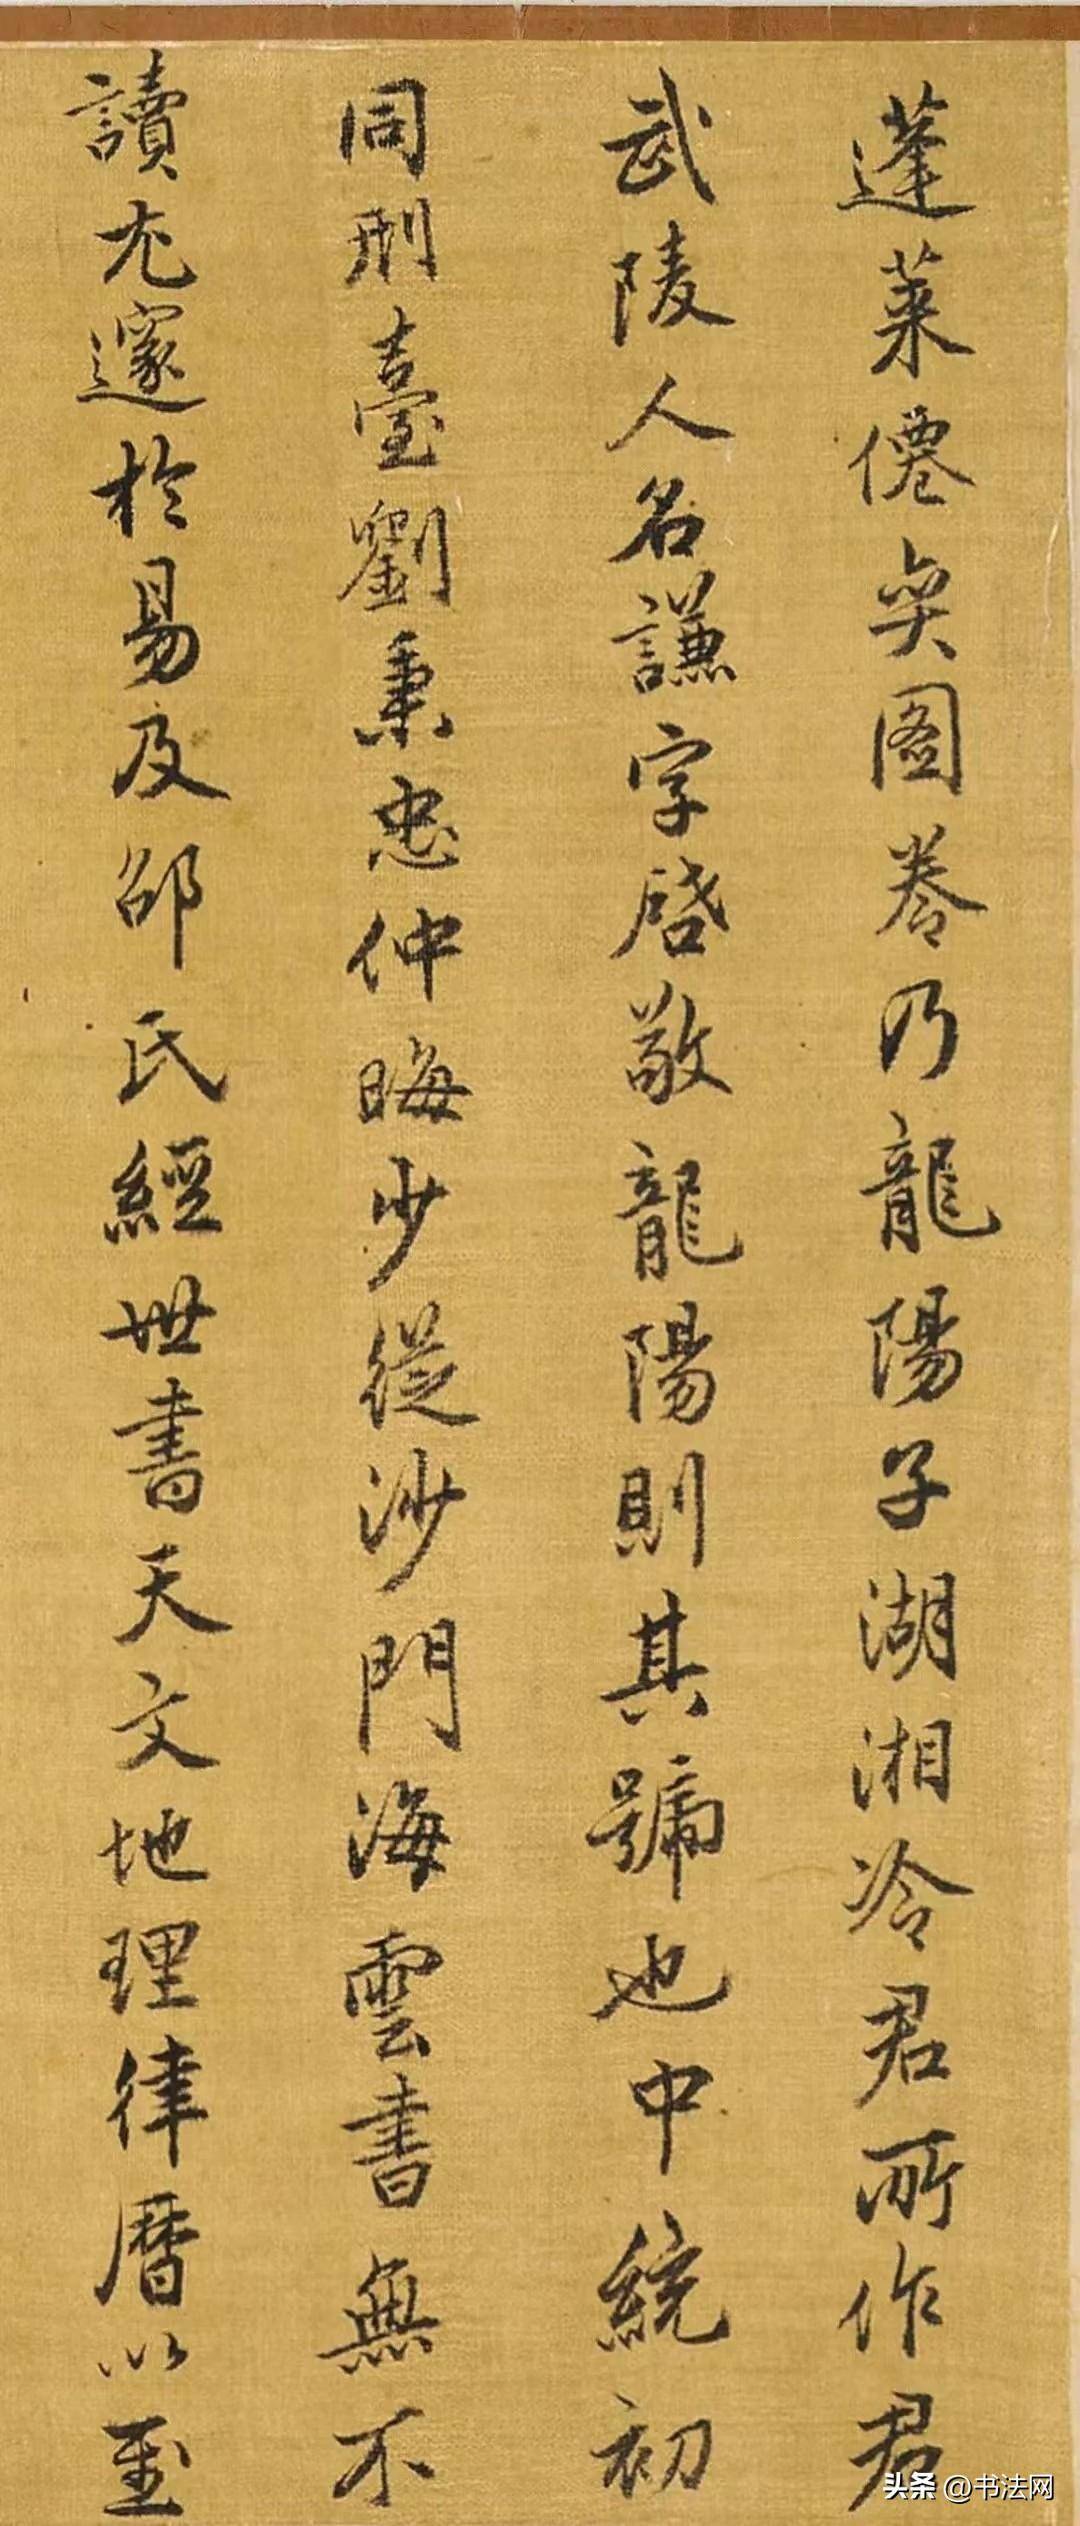 蓬萊僊奕圖卷乃龍陽子湖湘冷君所作君
武陵人名謙字啓敬龍陽則其號也中統初
同刑臺劉秉忠仲晦少從沙門海雲書無不
讀尤邃於易及邵氏經世書天文地理律曆以至
头条 @书法网